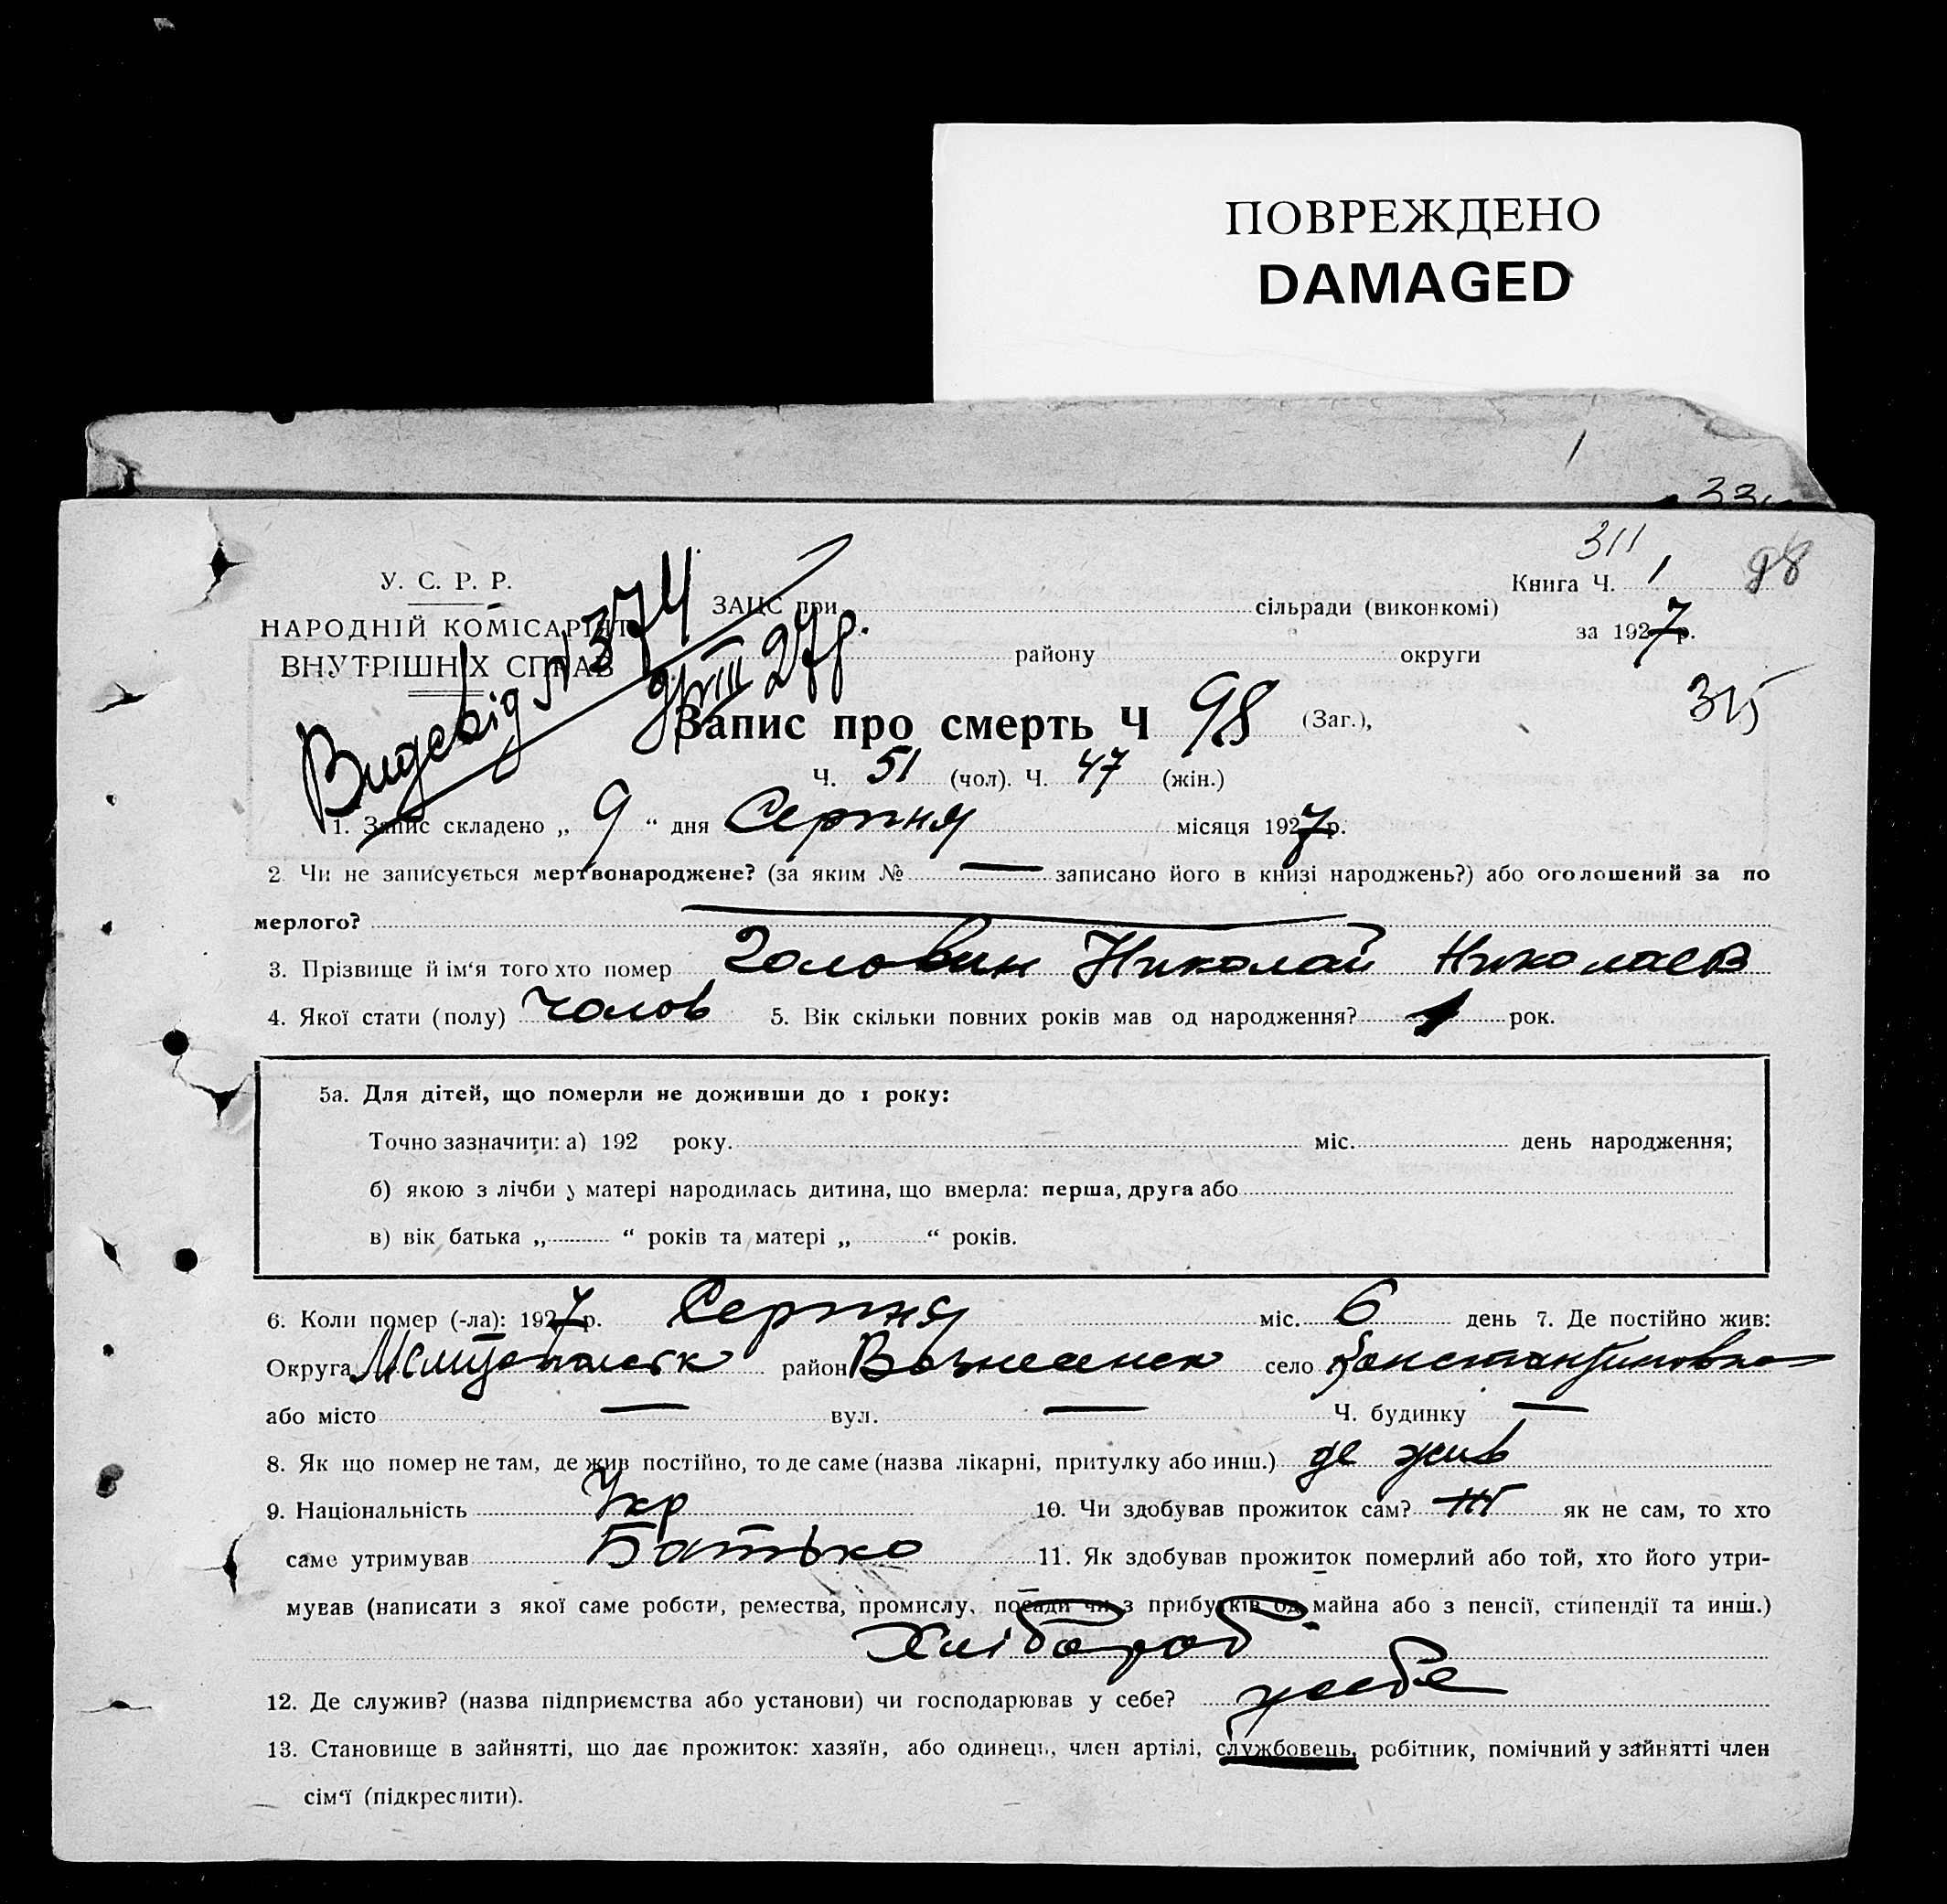 ПОВРЕЖДЕНО
DAMAGED
1
311
98
У. С. Р. Р.
НАРОДНІЙ КОМІСАРІЯТ
ВНУТРІШНІХ СПРАВ
Книга Ч. 1
ЗАЦС при сільради (виконкомі)
за 1927 р.
району округи
№ 374
9/VIII 27 р.
315
Запис про смерть Ч 98 (Заг.),
Ч. 51 (чол). Ч. 47 (жін.)
1. Запис складено „ 9 “ дня Серпня місяця 1927 р.
2. Чи не записується мертвонароджене? (за яким № — записано його в книзі народжень?) або оголошений за по
мерлого? —
3. Прізвище й ім'я того хто помер Головин Николай Николаев
4. Якої стати (полу) чолов 5. Вік скільки повних років мав од народження? 1 рок.
5а. Для дітей, що померли не доживши до 1 року:
Точно зазначити: а) 192 року. міс. день народження;
б) якою з лічби у матері народилась дитина, що вмерла: перша, друга або
в) вік батька „ “ років та матері „ “ років.
6. Коли помер (-ла): 1927 р. Серпня міс. 6 день 7. Де постійно жив:
Округа Мелитопольск район Вознесенск село Константиновка
або місто — вул. — Ч. будинку —
8. Як що помер не там, де жив постійно, то де саме (назва лікарні, притулку або инш.) де жив
9. Національність Укр 10. Чи здобував прожиток сам? ні як не сам, то хто
саме утримував Батько 11. Як здобував прожиток померлий або той, хто його утри-
мував (написати з якої саме роботи, ремества, промислу, посади чи з прибутків од майна або з пенсії, стипендії та инш.)
Хлібороб
12. Де служив? (назва підприємства або установи) чи господарював у себе? у себе
13. Становище в зайнятті, що дає прожиток: хазяїн, або одинець, член артілі, службовець, робітник, помічний у зайнятті член
сім'ї (підкреслити).